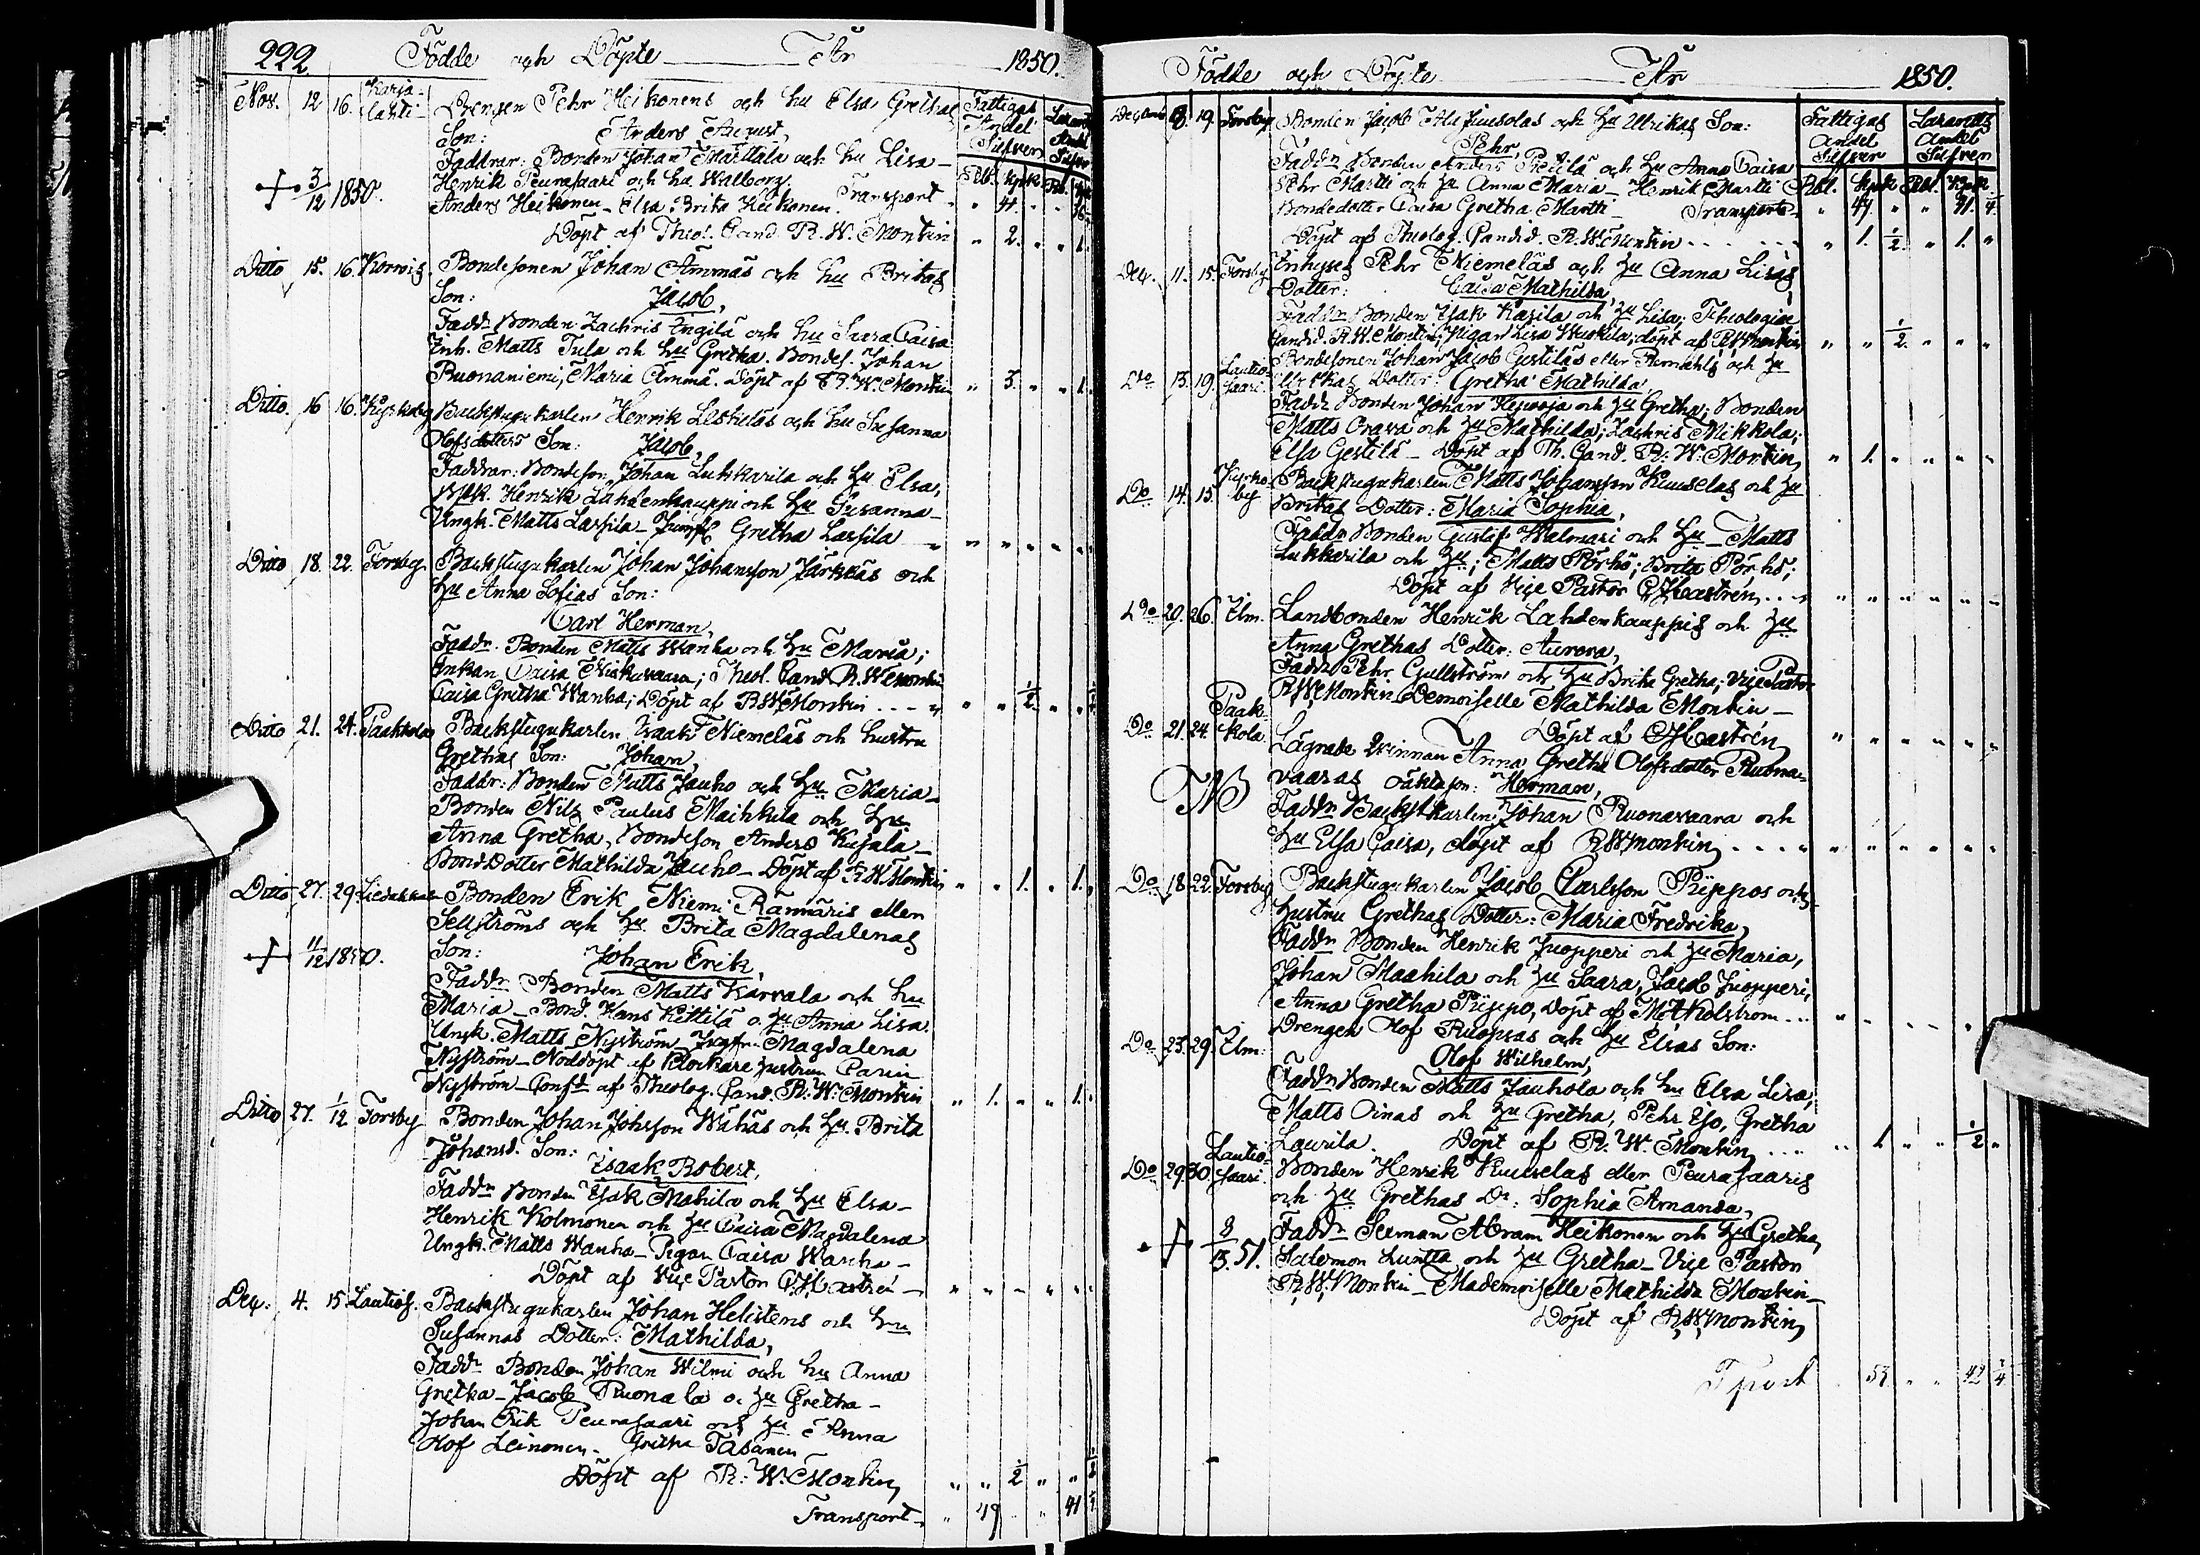 222. Födde och Döpte År 1850.
Nov. 12 16. Karja-
lahti Drengen Pehr Heikonens och hu Elsa Grethas
Son: Anders August,
Fattigas Andel Silfver
Lazar. Andel Silfv.
Rbl. Kpk. Rbl. Kpk.
Faddrar: Bonden Johan Marttala och hu Lisa –
Henrik Peurasaari och hu Walborg.
Anders Heikonen – Elsa Brita Heikonen. Transport
† 3/12 1850.
Döpt af Theol. Cand. R. W. Montin " 2. " " 1.
Ditto 15. 16. Korvis. Bondesonen Johan Ämmäs och hu Britas
Son: Jacob,
Faddr Bonden Zachris Ingilä och hu Saara Caisa
Inh. Matts Tula och hu Gretha. Bondes. Johan
Ruonaniemi, Maria Ämmä. Döpt af R. W. Montin " 3. " " 1.
Ditto. 16 16. Kyrkoby Backstugukarlen Henrik Leskeläs och hu Susanna
Olofsdotters Son: Jacob,
Faddrar: Bondeson. Johan Lukkarila och hu Elsa,
Henrik Lahdenkauppi och hu Susanna –
Ungk. Matts Lassila – Jungf. Gretha Lassila
Ditto 18. 22. Forsby Backstugukarlen Johan Johansson Järkkäs och
hu Anna Sofias Son:
Carl Herman,
Faddr. Bonden Matts Wanha och hu Maria;
Enkan Caisa Niskavaara; Theol. Cand R. W. Montin
Caisa Gretha Wanha; Döpt af R W Montin " " 1/2 " "
Ditto 21. 24. Paakkola Backstugukarlen Isaak Niemeläs och hustru
Grethas Son: Johan,
Faddr: Bonden Matts Jauho och hu Maria –
Bonden Nils Paulus Maihkila och hu
Anna Gretha, Bondeson Anders Kujala –
BondDotter Mathilda Jauho – Döpt af R. W. Montin " " 1. " 1.
Ditto 27. 29 Liedakkala Bonden Erik Niemi Rannäris eller
Sellströms och hu. Brita Magdalenas
† 11/12 1850. Son: Johan Erik,
Faddr Bonden Matts Karvala och hu
Maria – Bond. Hans Kittilä o. hu Anna Lisa.
Ungk. Matts Nyström Jungfru Magdalena
Nyström – Nöddöpt af Klockare hustrun Carin
Nyström – Confd af Theolog. Cand. R. W. Montin " 1. " " 1.
Ditto 27. 1/12 Forsby Bonden Johan Johsson Wähäs och hu. Brita
Johansd. Son: Isaak Robert,
Faddr Bonden Isak Mahila och hu Elsa –
Henrik Kolmonen och hu Caisa Magdalena
Ungk. Matts Wanha – Pigan Caisa Wanha –
Döpt af Vice Pastor Castrén –
Dec. 4. 15 Lautios. Backstugukarlen Johan Helistens och hu
Susannas Dotter: Mathilda,
Faddr Bonden Johan Wilmi och hu Anna
Gretha – Jacob Ruonala o. hu Gretha –
Johan Erik Peurasaari och hu Anna
Olof Leinonen – Gretha Tasanen
Döpt af R. W. Montin, " " 1/2 " " 1/2
Transport " 49 " 41
Födde och Döpte År 1850.
Decemb. 8. 19. Forsby Bonden Jacob Ala Juusolas och hu Ulrikas Son:
Pehr,
Fattigas Andel Silfver
Lazaretts Andel Silfver
Rbl. Kpk. Rbl. Kpk.
Faddr Bonden Anders Pietilä och hu Anna Caisa
Pehr Martti och hu Anna Maria – Henrik Martti
Bondedotter Caisa Gretha Martti – Transport " 49. " " 41.
Döpt af Theolog. Candid. R. W. Montin " 1. 1/2 " 1. "
Dec. 11. 15. Forsby Inhyses Pehr Niemeläs och hu Anna Lisas
Dotter: Caisa Mathilda,
Faddr Bonden Isak Karila och hu Lisa; Theologiæ
Candid. R. W. Montin; Pigan Lisa Wuokila; döpt af R W Montin " " 1/2 " " "
Dto 13. 19. Lautio-
saari. Bondesonen Johan Jacob Gestiläs eller Permahls och hu
Ulrikas Dotter: Gretha Mathilda,
Faddr Bonden Johan Kepsoja och hu Gretha; Bonden
Matts Orava och hu Mathilda; Zachris Mikkola;
Elsa Gestilä – Döpt af Th. Cand. R. W. Montin, " 1. " " " "
Do 14. 15. Kyrko-
by Backstugukarlen Matts Johansson Kuuselas och hu
Britas Dotter: Maria Sophia,
Faddr Bonden Gustaf Walmari och hu – Matts
Lukkarila och hu; Matts Pörhö; Brita Pörhö;
Döpt af Vice Pastor Castrén,
Dto 20. 26. Ilm. Landbonden Henrik Lahdenkauppis och hu
Anna Grethas Dotter: Aurora,
Faddr Pehr Gullström och hu Brita Gretha; Vice Pastor
R. W. Montin, Demoiselle Mathilda Montin –
Döpt af Castrén,
Do 21. 24. Paak-
kola Lägrade Qvinnan Anna Gretha Olofsdotter Ruona-
vaaras oäkta son: Herman,
Faddr Backstkarlen Johan Ruonavaara och
hu Elsa Caisa, döpt af R W Montin,
Do 18. 22. Forsby Backstugukarlen Jacob Carlsson Piippos och
hustru Grethas Dotter: Maria Fredrika,
Faddr Bonden Henrik Juopperi och hu Maria,
Johan Maahila och hu Saara, Jacob Juopperi,
Anna Gretha Piippo, Döpt af Holström
Do 23. 29. Ilm. Drengen Olof Ruopsas och hu Elsas Son:
Olof Wilhelm,
Faddr Bonden Matts Jauhola och hu Elsa Lisa,
Matts Oinas och hu Gretha, Pehr Iso, Gretha
Laurila. Döpt af R. W. Montin " 1. " " 1/2 "
Do 29 30. Lautio-
saari. Bonden Henrik Kuuselas eller Peurasaaris
och hu Grethas Dr: Sophia Amanda,
† 8/13. 51. Faddr Sexman Abram Heikonen och hu Gretha,
Salomon Luntta och hu Gretha – Vice Pastor
R. W. Montin – Mademoiselle Mathilda Montin –
Döpt af R W Montin,
Tport 53 " " 42 3/4